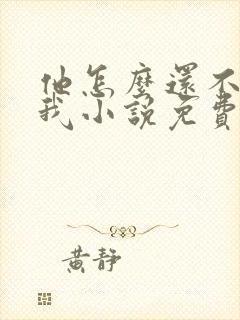 他怎麼還不
我小說免費
黃靜